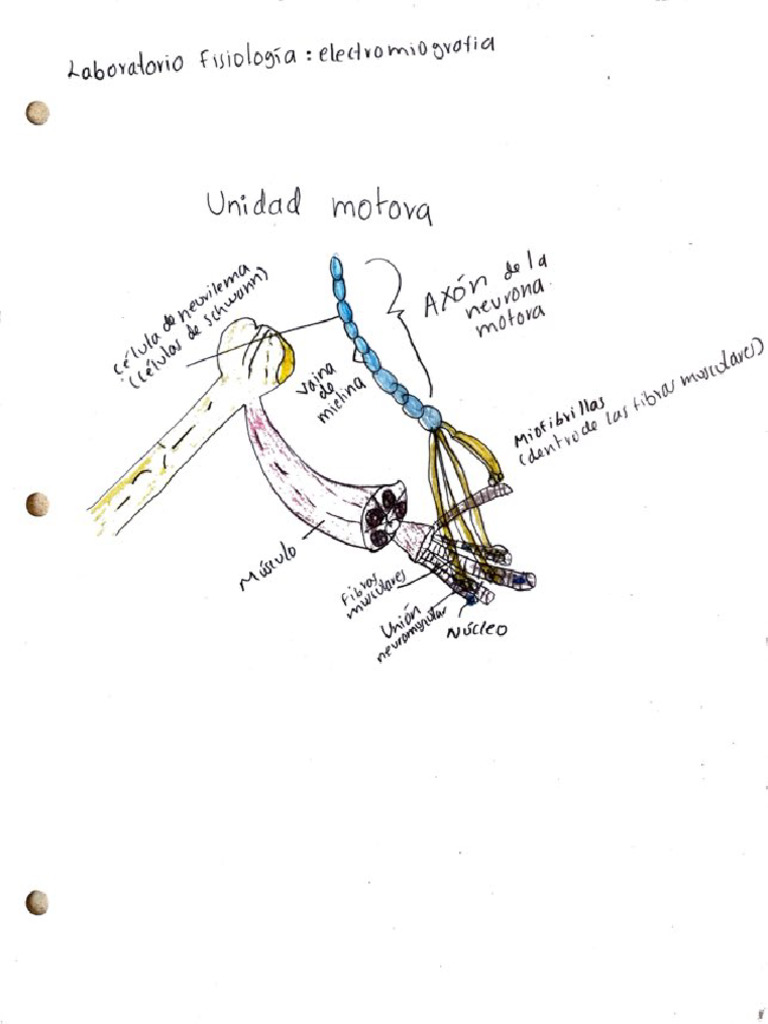 Laboratorio Fisiología: electromiografia
Unidad motora
Célula de neurilema
(células de schwann)
Axón de la
neurona
motora
Vaina
de
mielina
Miofibrillas
(dentro de las fibras musculares)
Músculo
Fibras
musculares
Unión
neuromuscular
Núcleo